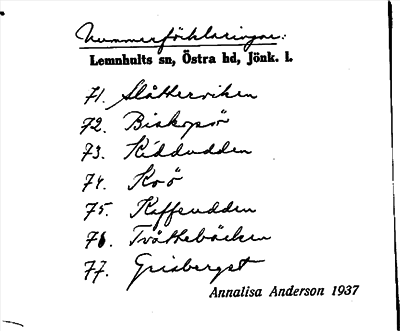 Nummerförklaringar:
Lemnhults sn, Östra hd, Jönk. l.
71. Slåtterviken
72. Biskopsö
73. Kiddudden
74. Koö
75. Kaffeudden
76. Tvättebäcken
77. Grisberget
Annalisa Anderson 1937